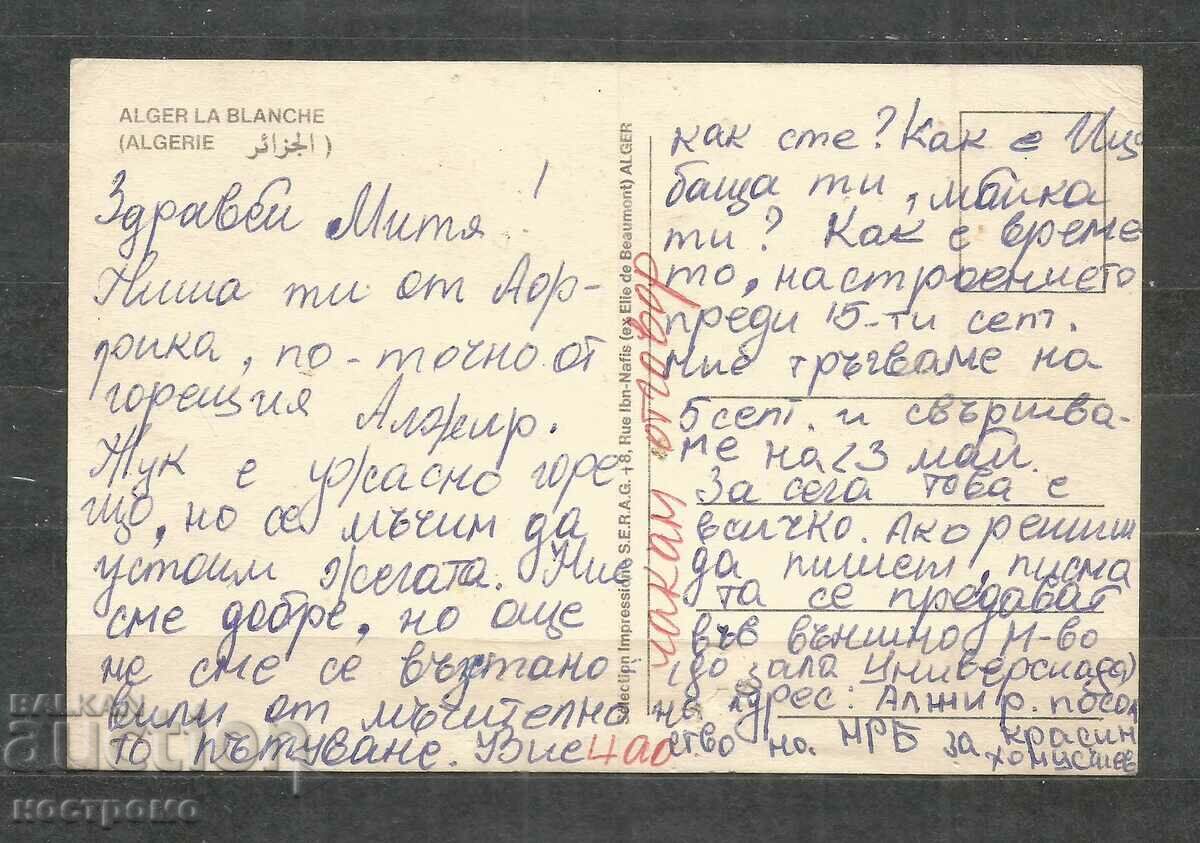 ALGER LA BLANCHE
(ALGERIE الجزائر)
Здравей Митя!
Пиша ти от Аф-
рика, по-точно от
горещия Алжир.
Тук е ужасно горе
що, но се мъчим да
устоим жегата. Ние
сме добре, но още
не сме се възтано
вили от мъчително
то пътуване. Вие
как сте? Как е
баща ти, майка
ти? Как е време
то, настроението
преди 15-ти септ.
Ние тръгваме на
5 септ. и свършва-
ме на 23 май.
За сега това е
всичко. Ако решиш
да пишеш, писма
та се предават
във външно М-во
(до зала Универсиада)
Адрес: Алжир. посол
ство на НРБ за Красин
чао
чакам отговор
Sélection Impressions S.E.R.A.G. +8, Rue Ibn-Nafis (ex Elie de Beaumont) ALGER
BALKAN
auction
костромо